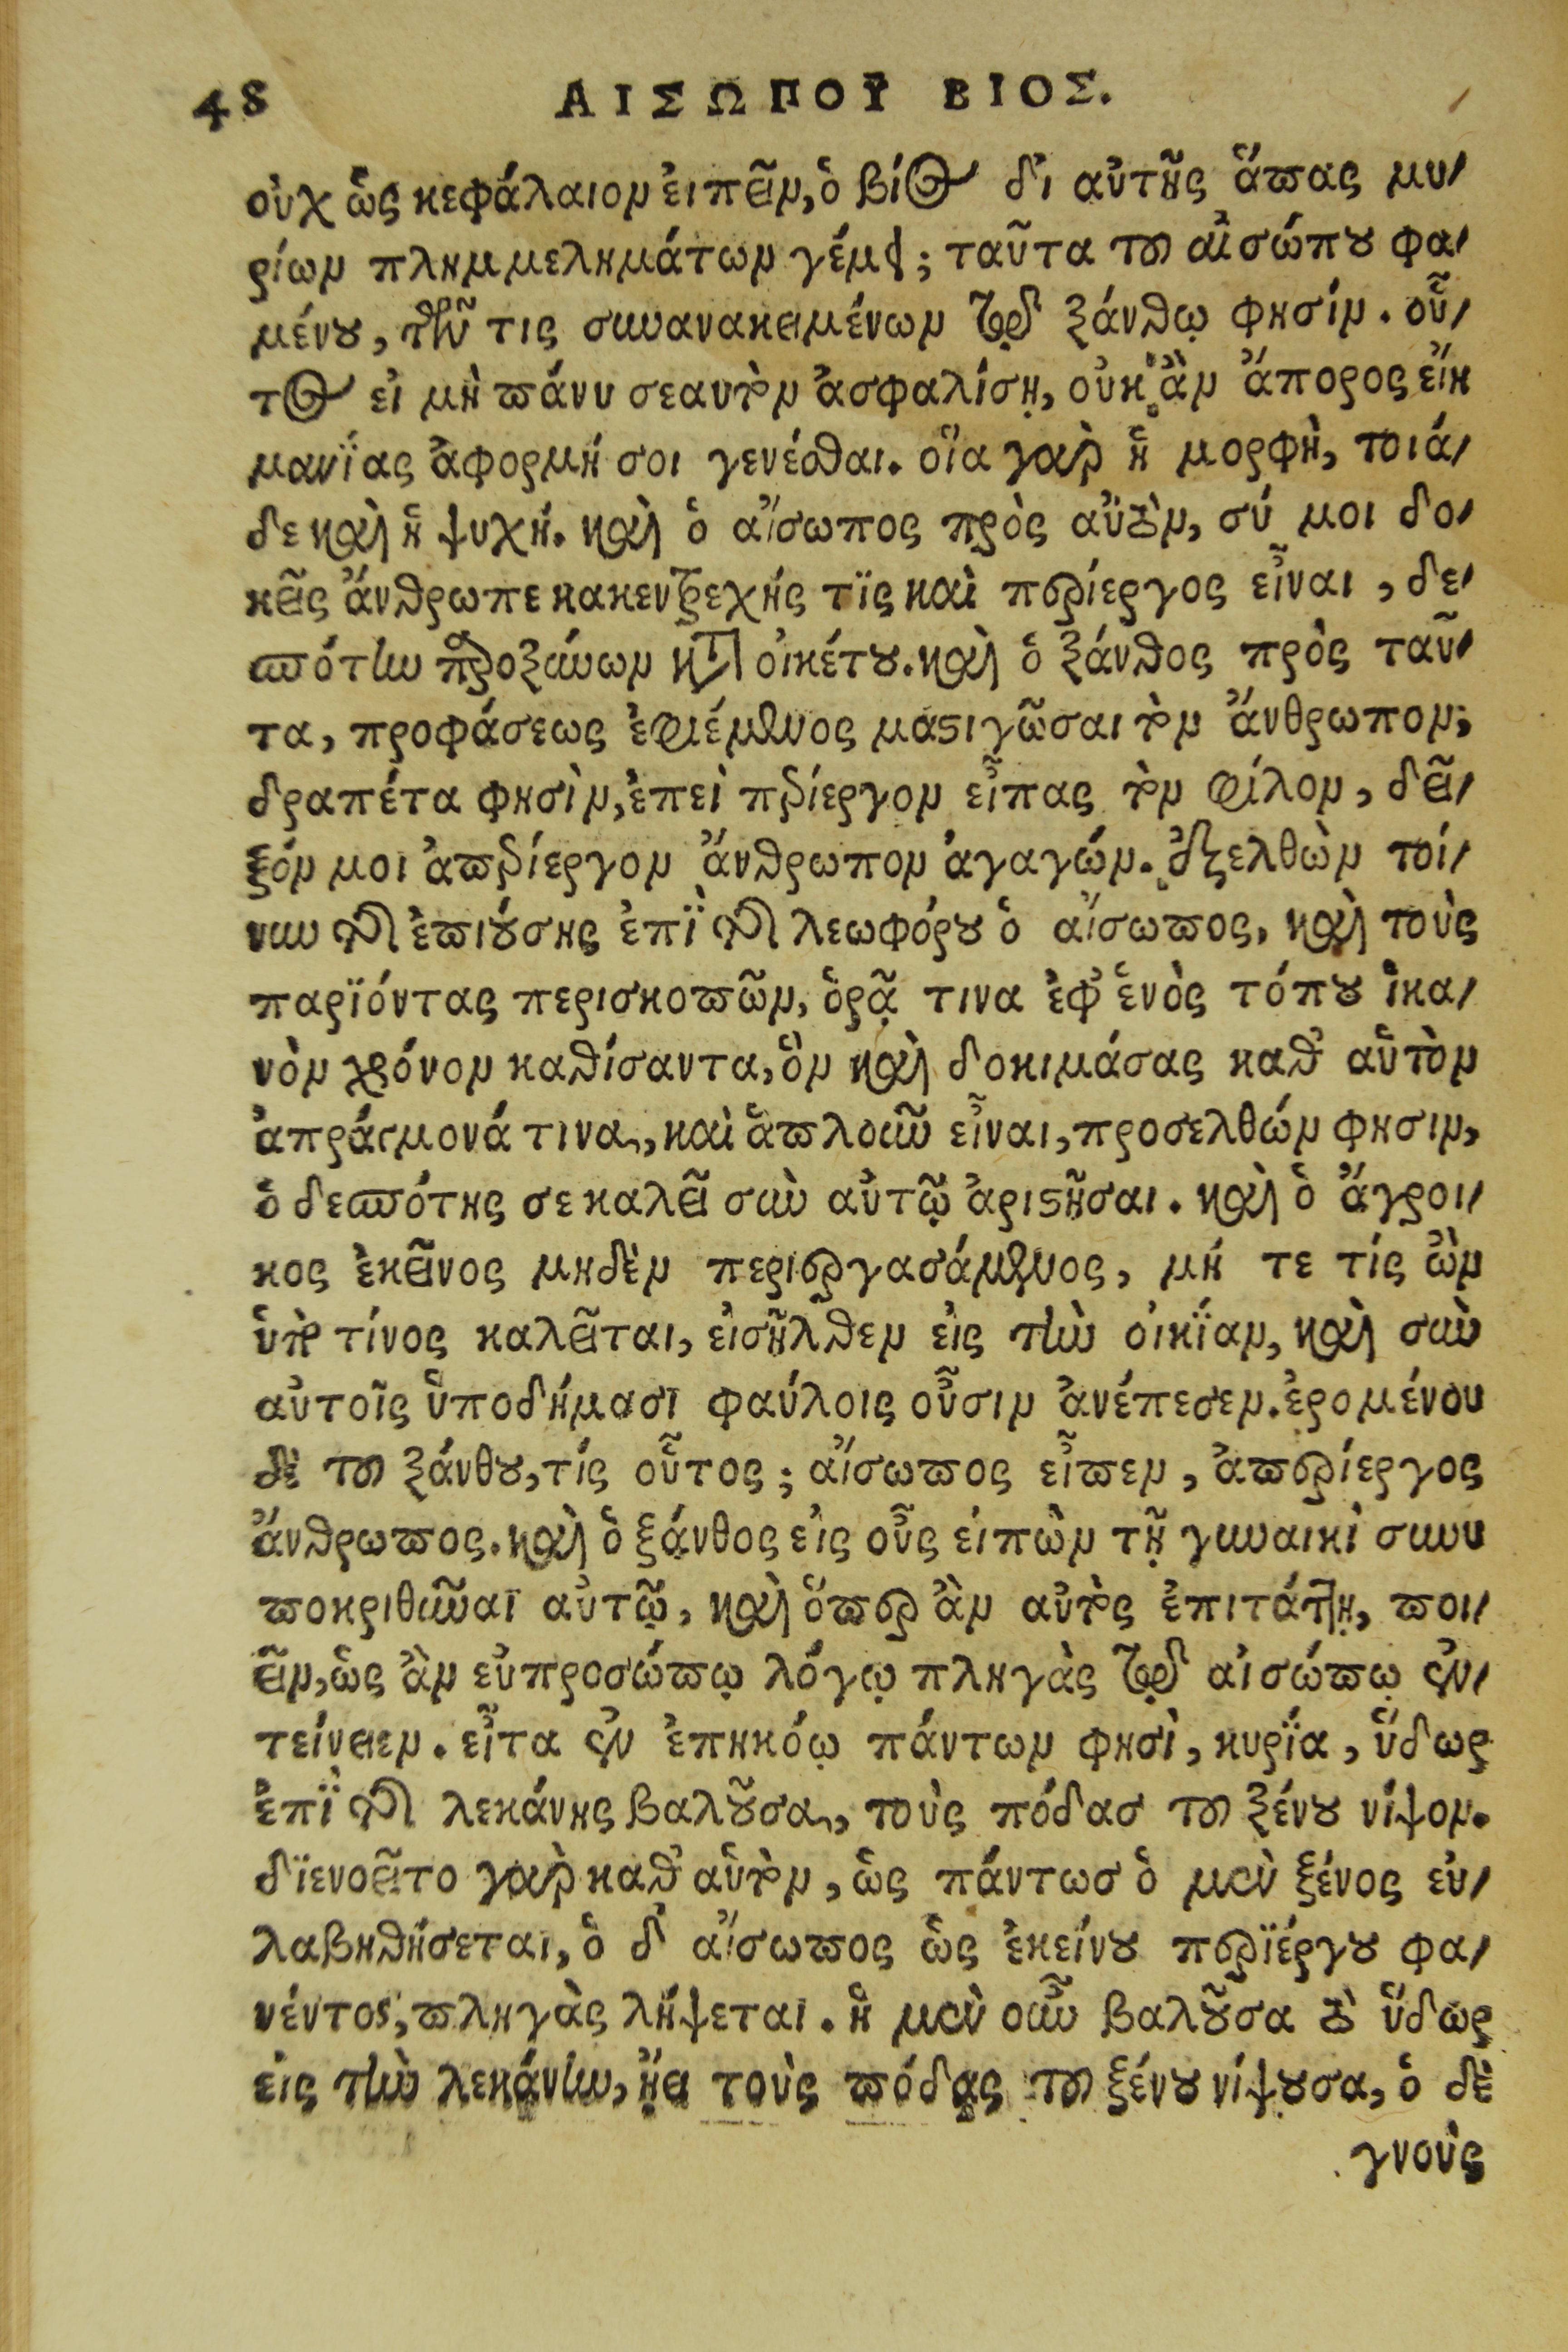 48 ΑΙΣΩΠΟΥ ΒΙΟΣ.
οὐχ ὡς κεφάλαιον εἰπεῖν, ὁ βίος δι αὐτῆς ἅπας μυ/
ρίων πλημμελημάτων γέμει; ταῦτα τοῦ αἰσώπου φα/
μένου, τῶν τις συνανακειμένων τῷ ξάνθῳ φησίν. οὗ/
τος εἰ μὴ πάνυ σεαυτὸν ἀσφαλίσῃ, οὐκ ἂν ἄπορος εἴη
μανΐας ἀφορμή σοι γενέσθαι. οἵα γὰρ ἡ μορφὴ, τοιά/
δε καὶ ἡ ψυχή. καὶ ὁ αἴσωπος πρὸς αὐτὸν, σύ μοι δο/
κεῖς ἄνθρωπε κακεντρεχής τῒς καὶ περίεργος εἶναι, δε/
σπότην παροξύνων κατὰ οἰκέτου. καὶ ὁ ξάνθος πρὸς ταῦ/
τα, προφάσεως ἐφιέμενος μαστιγῶσαι τὸν ἄνθρωπον;
δραπέτα φησὶν, ἐπεὶ περίεργον εἶπας τὸν φίλον, δεῖ/
ξόν μοι ἀπερίεργον ἄνθρωπον ἀγαγών. ἐξελθὼν τοί/
νυν τῆς ἐπιούσης ἐπῒ τῆς λεωφόρου ὁ αἴσωπος, καὶ τοὺς
παρϊόντας περισκοπῶν, ὁρᾷ τινα ἐφ' ἑνὸς τόπου ἱκα/
νὸν χρόνον καθίσαντα, ὃν καὶ δοκιμάσας καθ' αὑτὸν
ἀπράγμονά τινα, καὶ ἁπλοῦν εἶναι, προσελθών φησιν,
ὁ δεσπότης σε καλεῖ σὺν αὐτῷ ἀριστῆσαι. καὶ ὁ ἄγροι/
κος ἐκεῖνος μηδὲν περιεργασάμενος, μή τε τίς ὢν
ὑπὸ τίνος καλεῖται, εἰσῆλθεν εἰς τὴν οἰκΐαν, καὶ σὺν
αὐτοῖς ὑποδήμασϊ φαύλοις οὖσιν ἀνέπεσεν. ἐρομένου
δὲ τοῦ ξάνθου, τίς οὗτος; αἴσωπος εἶπεν, ἀπερίεργος
ἄνθρωπος. καὶ ὁ ξάνθος εἰς οὖς εἰπὼν τῇ γυναικὶ συνυ
ποκριθῆναϊ αὐτῷ, καὶ ὅπερ ἂν αὐτὸς ἐπιτάττῃ, ποι/
εῖν, ὡς ἂν εὐπροσώπῳ λόγῳ πληγὰς τῷ αἰσώπῳ ἐν/
τείνειεν. εἶτα ἐν ἐπηκόῳ πάντων φησὶ, κυρΐα, ὕδωρ
ἐπῒ τῆς λεκάνης βαλοῦσα, τοὺς πόδασ τοῦ ξένου νίψον.
δϊενοεῖτο γὰρ καθ' αὑτὸν, ὡς πάντωσ ὁ μὲν ξένος εὐ/
λαβηθήσεταϊ, ὁ δ' αἴσωπος ὡς ἐκείνου περϊέργου φα/
νέντος, πληγὰς λήψεταϊ. ἡ μὲν οὖν βαλοῦσα τὸ ὕδωρ
εἰς τὴν λεκάνην, ᾔει τοὺς πόδας τοῦ ξένου νίψουσα, ὁ δὲ
γνοὺς